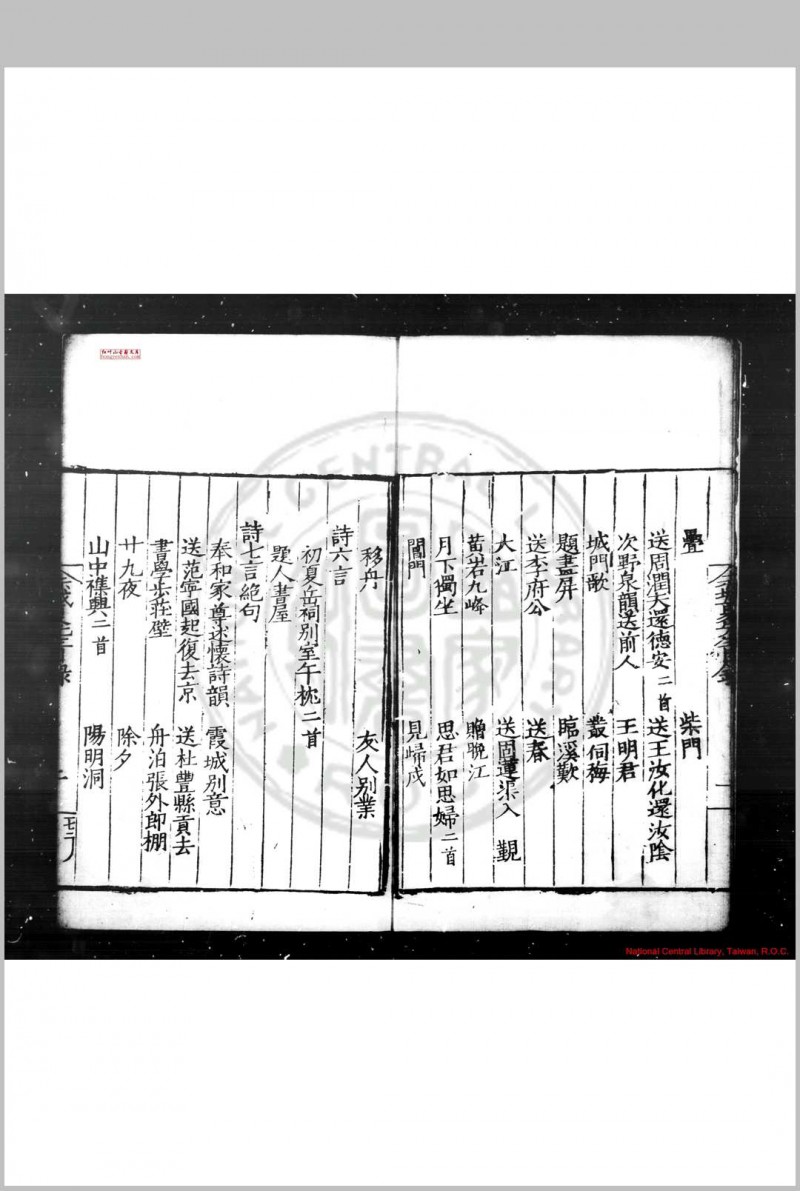 疊　柴門
送周潤夫還德安二首　送王汝化還汝陰
次野泉韻送前人　王明君
城門歌　叢伺梅
題畫屏　臨溪歎
送李府公　送春
大江　送周蓮渠入覲
黃岩九峰　贈晚江
月下獨坐　思君如思婦二首
閶門　見歸戍
移舟　友人別業
詩六言
初夏岳祠別室午枕二首
題人書屋
詩七言絕句
奉和家尊述懷詩韻　霞城別意
送范寧國起復去京　送杜豐縣貢去
書學步莊壁　舟泊張外郎棚
廿九夜　除夕
山中襍興二首　陽明洞
National Central Library, Taiwan, R.O.C.